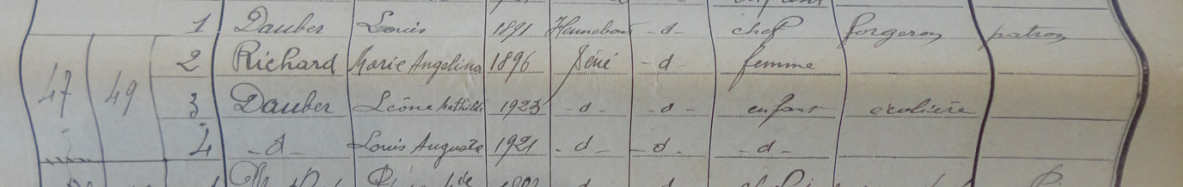 1 Dauber Louis 1891 Hennebont -d- chef forgeron patron
2 Richard Marie Angelina 1896 Séné -d- femme
47 49 3 Dauber Léone Mathilde 1923 -d- -d- enfant écolière
4 -d- Louis Auguste 1921 -d- -d- -d-